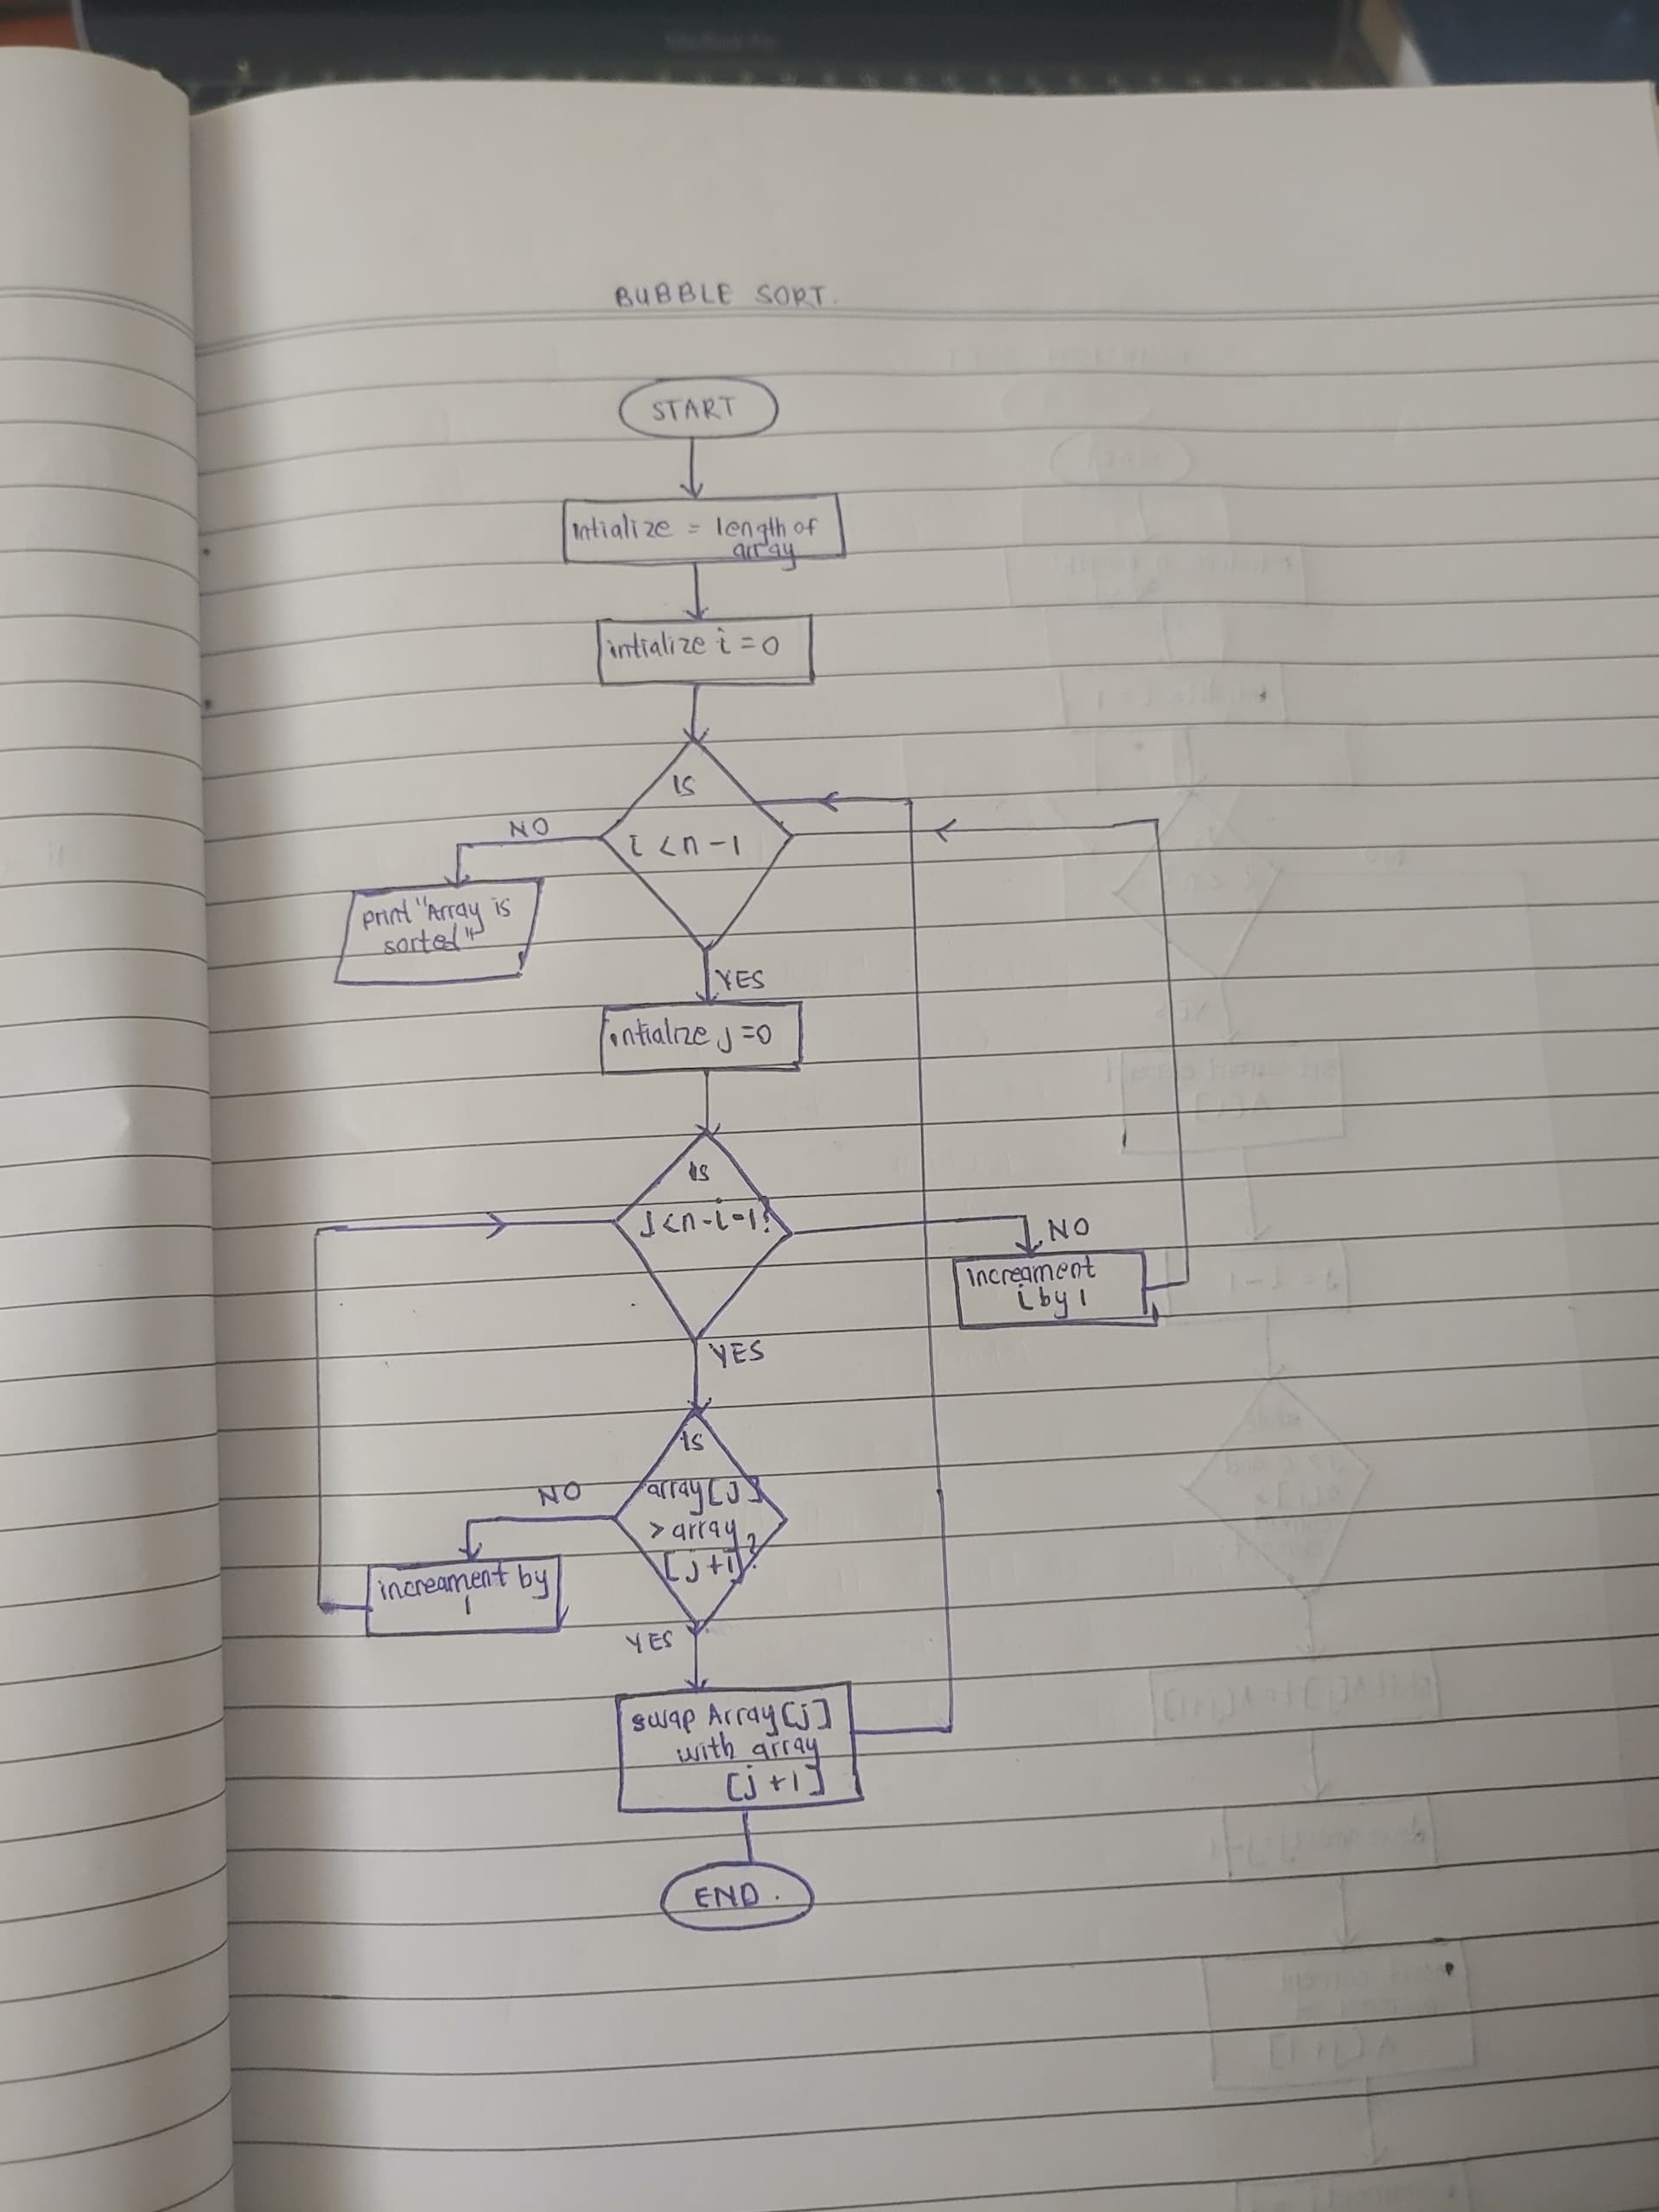 BUBBLE SORT.
START
intialize = length of
array
intialize i = 0
IS
i < n - 1
NO
print "Array is
sorted"
YES
intialize j = 0
Is
J < n - i - 1?
NO
increament
i by 1
YES
is
array [J]
> array
[j + 1]?
NO
increament by
1
YES
swap Array [j]
with array
[j + 1]
END.